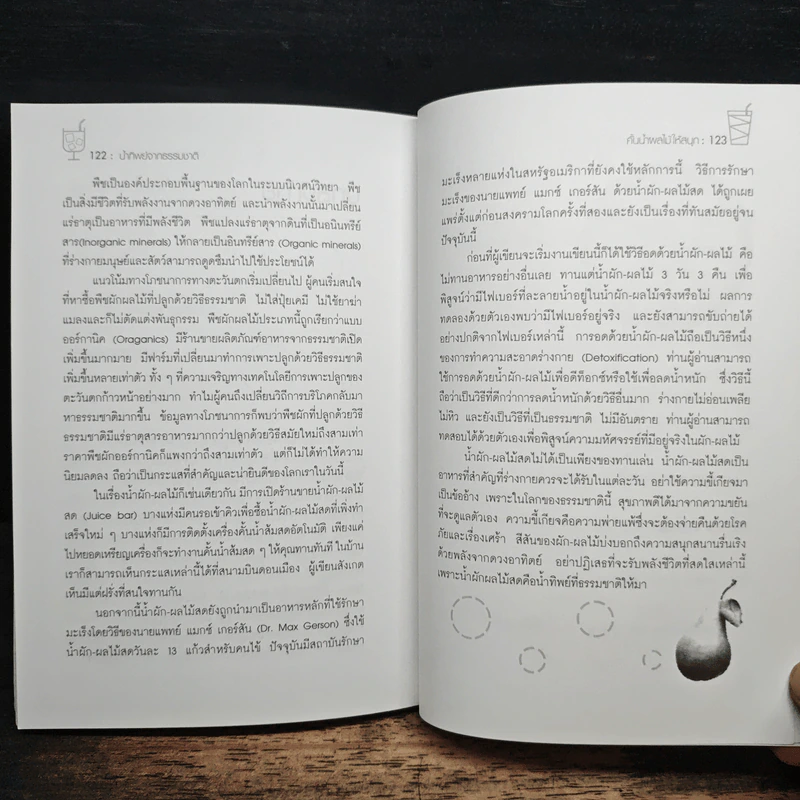 122 : น้ำทิพย์จากธรรมชาติ
พืชเป็นองค์ประกอบพื้นฐานของโลกในระบบนิเวศน์วิทยา พืช
เป็นสิ่งมีชีวิตที่รับพลังงานจากดวงอาทิตย์ และนำพลังงานนั้นมาเปลี่ยน
แร่ธาตุเป็นอาหารที่มีพลังชีวิต พืชแปลงแร่ธาตุจากดินที่เป็นอนินทรีย์
สาร(Inorganic minerals) ให้กลายเป็นอินทรีย์สาร (Organic minerals)
ที่ร่างกายมนุษย์และสัตว์สามารถดูดซึมนำไปใช้ประโยชน์ได้
แนวโน้มทางโภชนาการทางตะวันตกเริ่มเปลี่ยนไป ผู้คนเริ่มสนใจ
ที่หาซื้อพืชผักผลไม้ที่ปลูกด้วยวิธีธรรมชาติ ไม่ใส่ปุ๋ยเคมี ไม่ใช้ยาฆ่า
แมลงและก็ไม่ตัดแต่งพันธุกรรม พืชผักผลไม้ประเภทนี้ถูกเรียกว่าแบบ
ออร์กานิค (Oraganics) มีร้านขายผลิตภัณฑ์อาหารจากธรรมชาติเปิด
เพิ่มขึ้นมากมาย มีฟาร์มที่เปลี่ยนมาทำการเพาะปลูกด้วยวิธีธรรมชาติ
เพิ่มขึ้นหลายเท่าตัว ทั้ง ๆ ที่ความเจริญทางเทคโนโลยีการเพาะปลูกของ
ตะวันตกก้าวหน้าอย่างมาก ทำไมผู้คนถึงเปลี่ยนวิถีการบริโภคกลับมา
หาธรรมชาติมากขึ้น ข้อมูลทางโภชนาการก็พบว่าพืชผักที่ปลูกด้วยวิธี
ธรรมชาติมีแร่ธาตุสารอาหารมากกว่าปลูกด้วยวิธีสมัยใหม่ถึงสามเท่า
ราคาพืชผักออร์กานิคก็แพงกว่าถึงสามเท่าตัว แต่ก็ไม่ได้ทำให้ความ
นิยมลดลง ถือว่าเป็นกระแสที่สำคัญและน่ายินดีของโลกเราในวันนี้
ในเรื่องน้ำผัก-ผลไม้ก็เช่นเดียวกัน มีการเปิดร้านขายน้ำผัก-ผลไม้
สด (Juice bar) บางแห่งมีคนรอเข้าคิวเพื่อซื้อน้ำผัก-ผลไม้สดที่เพิ่งทำ
เสร็จใหม่ ๆ บางแห่งก็มีการติดตั้งเครื่องคั้นน้ำส้มสดอัตโนมัติ เพียงแค่
ไปหยอดเหรียญเครื่องก็จะทำงานคั้นน้ำส้มสด ๆ ให้คุณทานทันที ในบ้าน
เราก็สามารถเห็นกระแสเหล่านี้ได้ที่สนามบินดอนเมือง ผู้เขียนสังเกต
เห็นมีแต่ฝรั่งที่สนใจทานกัน
นอกจากนี้น้ำผัก-ผลไม้สดยังถูกนำมาเป็นอาหารหลักที่ใช้รักษา
มะเร็งโดยวิธีของนายแพทย์ แมกซ์ เกอร์สัน (Dr. Max Gerson) ซึ่งใช้
น้ำผัก-ผลไม้สดวันละ 13 แก้วสำหรับคนไข้ ปัจจุบันมีสถาบันรักษา
คั้นน้ำผลไม้ให้สนุก : 123
มะเร็งหลายแห่งในสหรัฐอเมริกาที่ยังคงใช้หลักการนี้ วิธีการรักษา
มะเร็งของนายแพทย์ แมกซ์ เกอร์สัน ด้วยน้ำผัก-ผลไม้สด ได้ถูกเผย
แพร่ตั้งแต่ก่อนสงครามโลกครั้งที่สองและยังเป็นเรื่องที่ทันสมัยอยู่จน
ปัจจุบันนี้
ก่อนที่ผู้เขียนจะเริ่มงานเขียนนี้ก็ได้ใช้วิธีอดด้วยน้ำผัก-ผลไม้ คือ
ไม่ทานอาหารอย่างอื่นเลย ทานแต่น้ำผัก-ผลไม้ 3 วัน 3 คืน เพื่อ
พิสูจน์ว่ามีไฟเบอร์ที่ละลายน้ำอยู่ในน้ำผัก-ผลไม้จริงหรือไม่ ผลการ
ทดลองด้วยตัวเองพบว่ามีไฟเบอร์อยู่จริง และยังสามารถขับถ่ายได้
อย่างปกติจากไฟเบอร์เหล่านี้ การอดด้วยน้ำผัก-ผลไม้ถือเป็นวิธีหนึ่ง
ของการทำความสะอาดร่างกาย (Detoxification) ท่านผู้อ่านสามารถ
ใช้การอดด้วยน้ำผัก-ผลไม้เพื่อดีท็อกซ์หรือใช้เพื่อลดน้ำหนัก ซึ่งวิธีนี้
ถือว่าเป็นวิธีที่ดีกว่าการลดน้ำหนักด้วยวิธีอื่นมาก ร่างกายไม่อ่อนเพลีย
ไม่หิว และยังเป็นวิธีที่เป็นธรรมชาติ ไม่มีอันตราย ท่านผู้อ่านสามารถ
ทดสอบได้ด้วยตัวเองเพื่อพิสูจน์ความมหัศจรรย์ที่มีอยู่จริงในผัก-ผลไม้
น้ำผัก-ผลไม้สดไม่ได้เป็นเพียงของทานเล่น น้ำผัก-ผลไม้สดเป็น
อาหารที่สำคัญที่ร่างกายควรจะได้รับในแต่ละวัน อย่าใช้ความขี้เกียจมา
เป็นข้ออ้าง เพราะในโลกของธรรมชาตินี้ สุขภาพดีได้มาจากความขยัน
ที่จะดูแลตัวเอง ความขี้เกียจคือความพ่ายแพ้ซึ่งจะต้องจ่ายคืนด้วยโรค
ภัยและเรื่องเศร้า สีสันของผัก-ผลไม้บ่งบอกถึงความสนุกสนานรื่นเริง
ด้วยพลังจากดวงอาทิตย์ อย่าปฏิเสธที่จะรับพลังชีวิตที่สดใสเหล่านี้
เพราะน้ำผักผลไม้สดคือน้ำทิพย์ที่ธรรมชาติให้มา